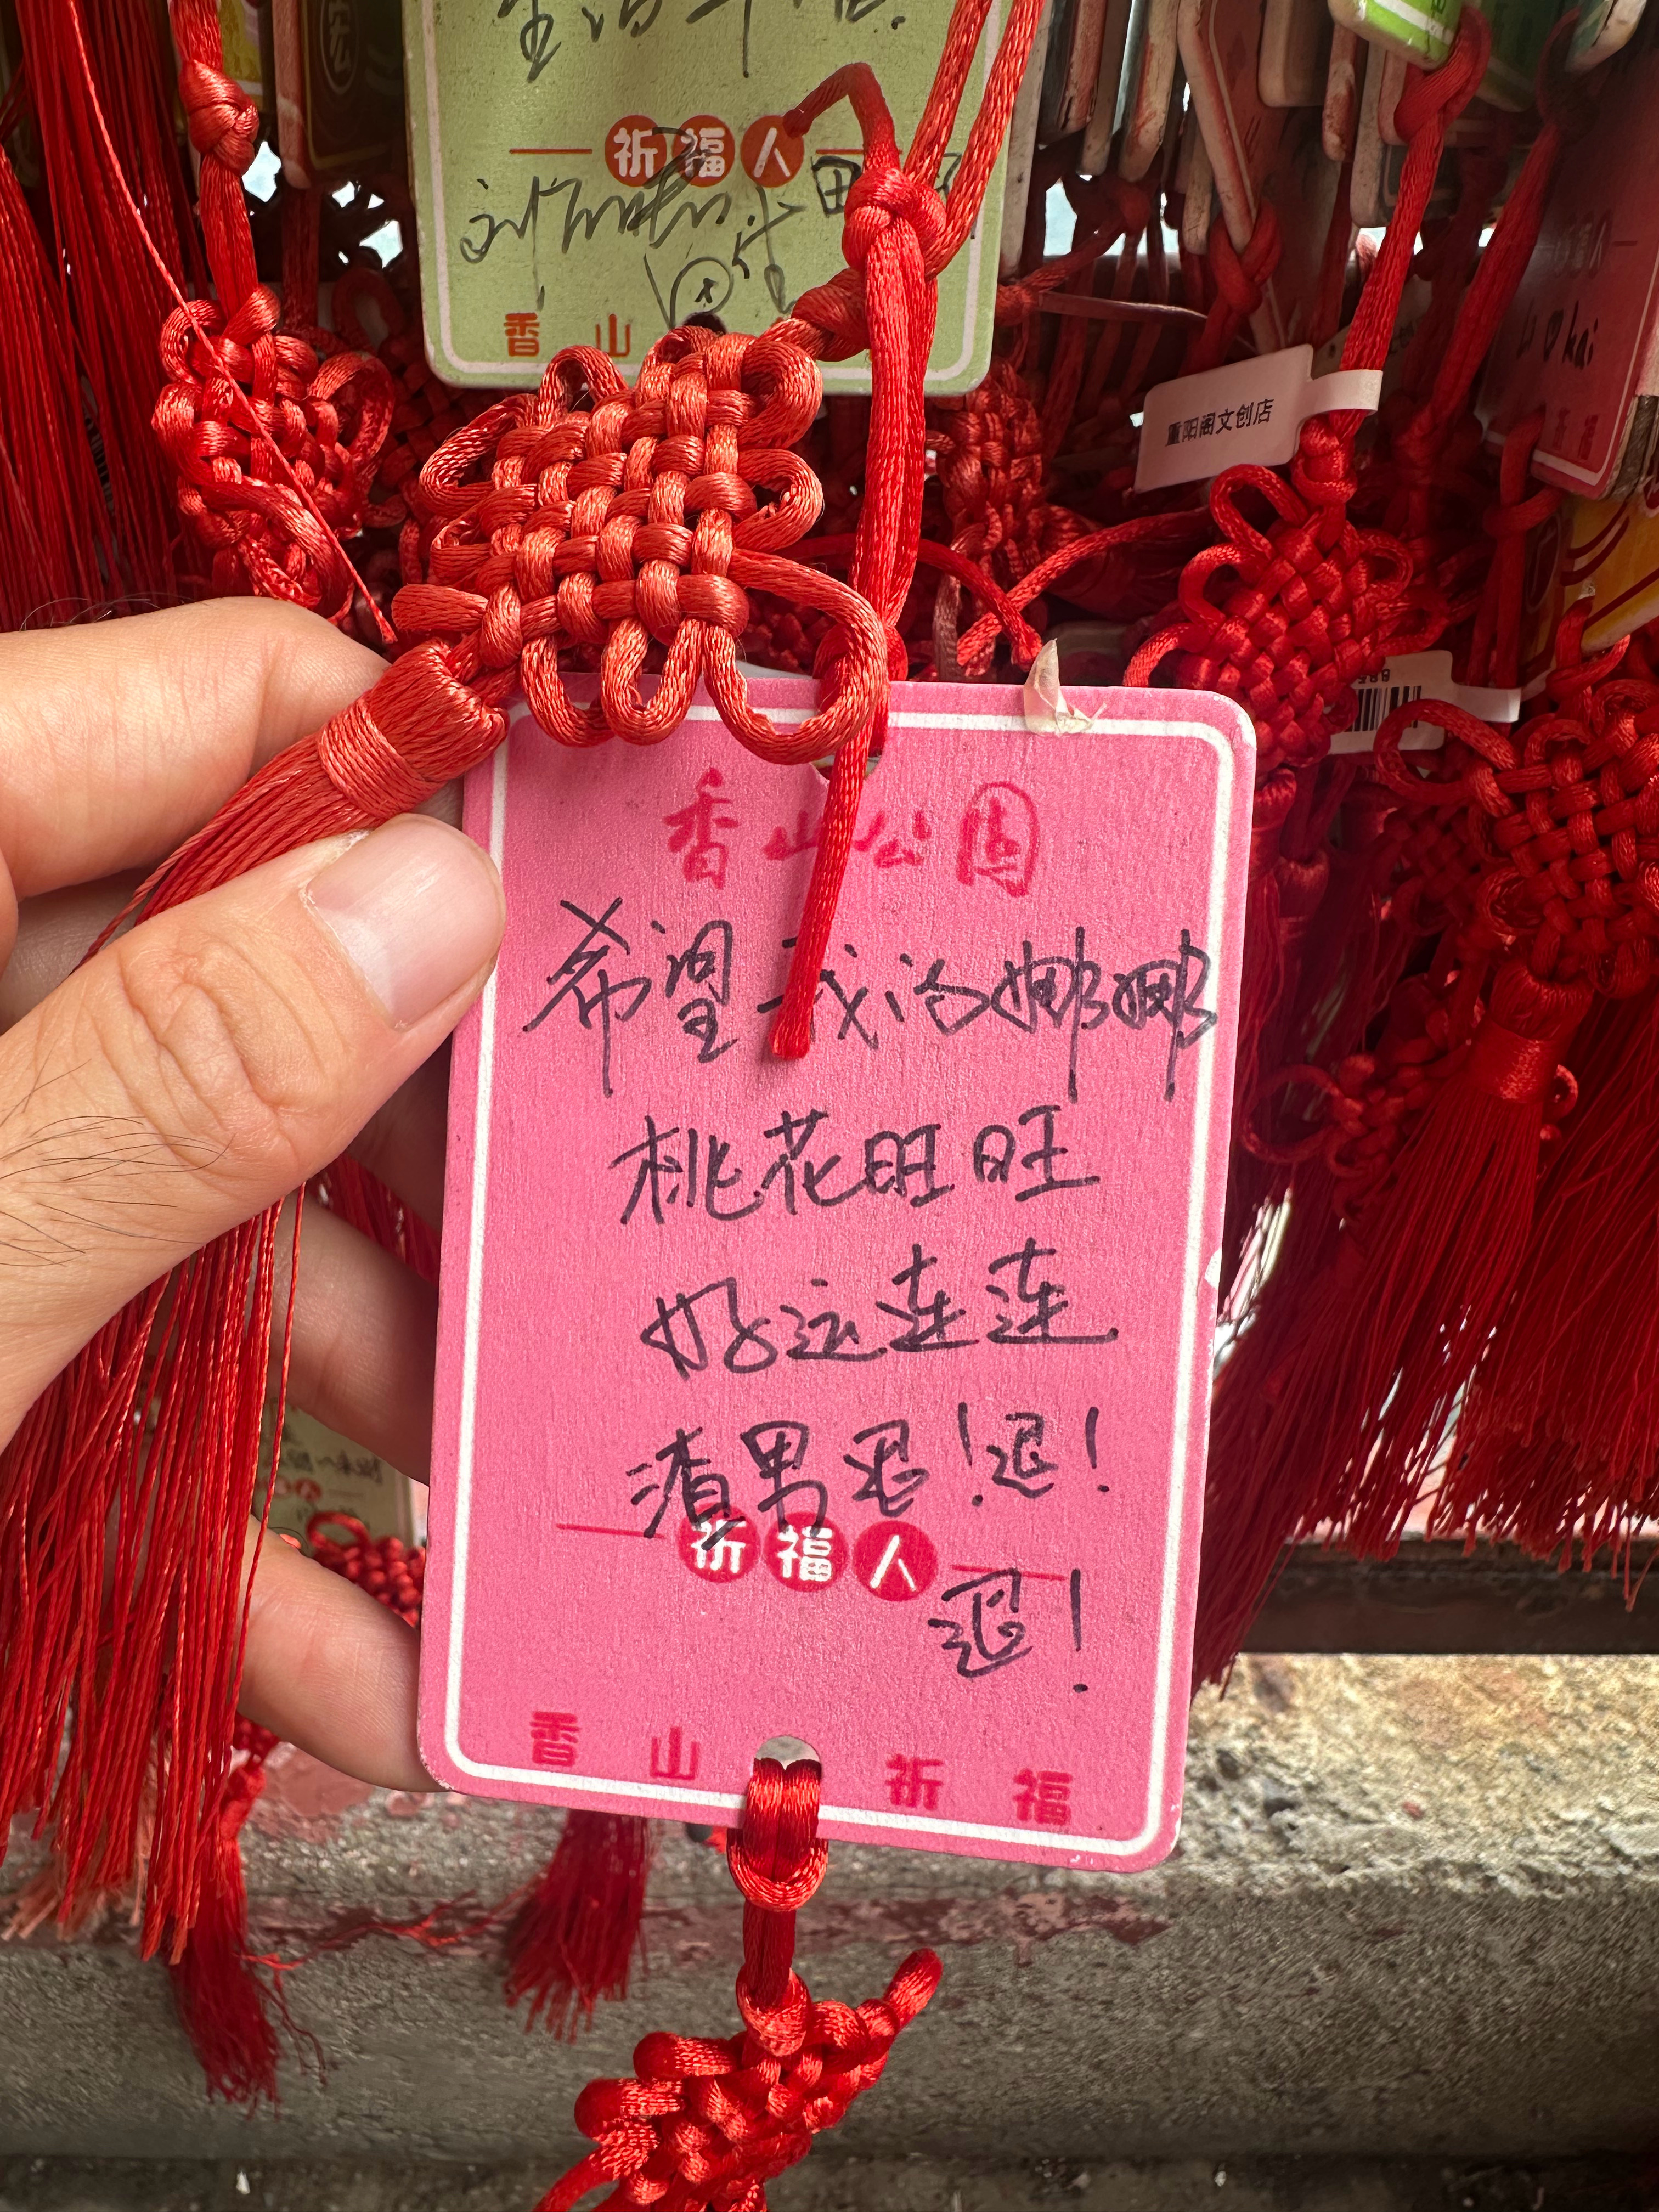 祈福人
香山
重阳阁文创店
香山公园
希望我的娜娜
桃花旺旺
好运连连
渣男退！退！
祈福人
退！
香山祈福